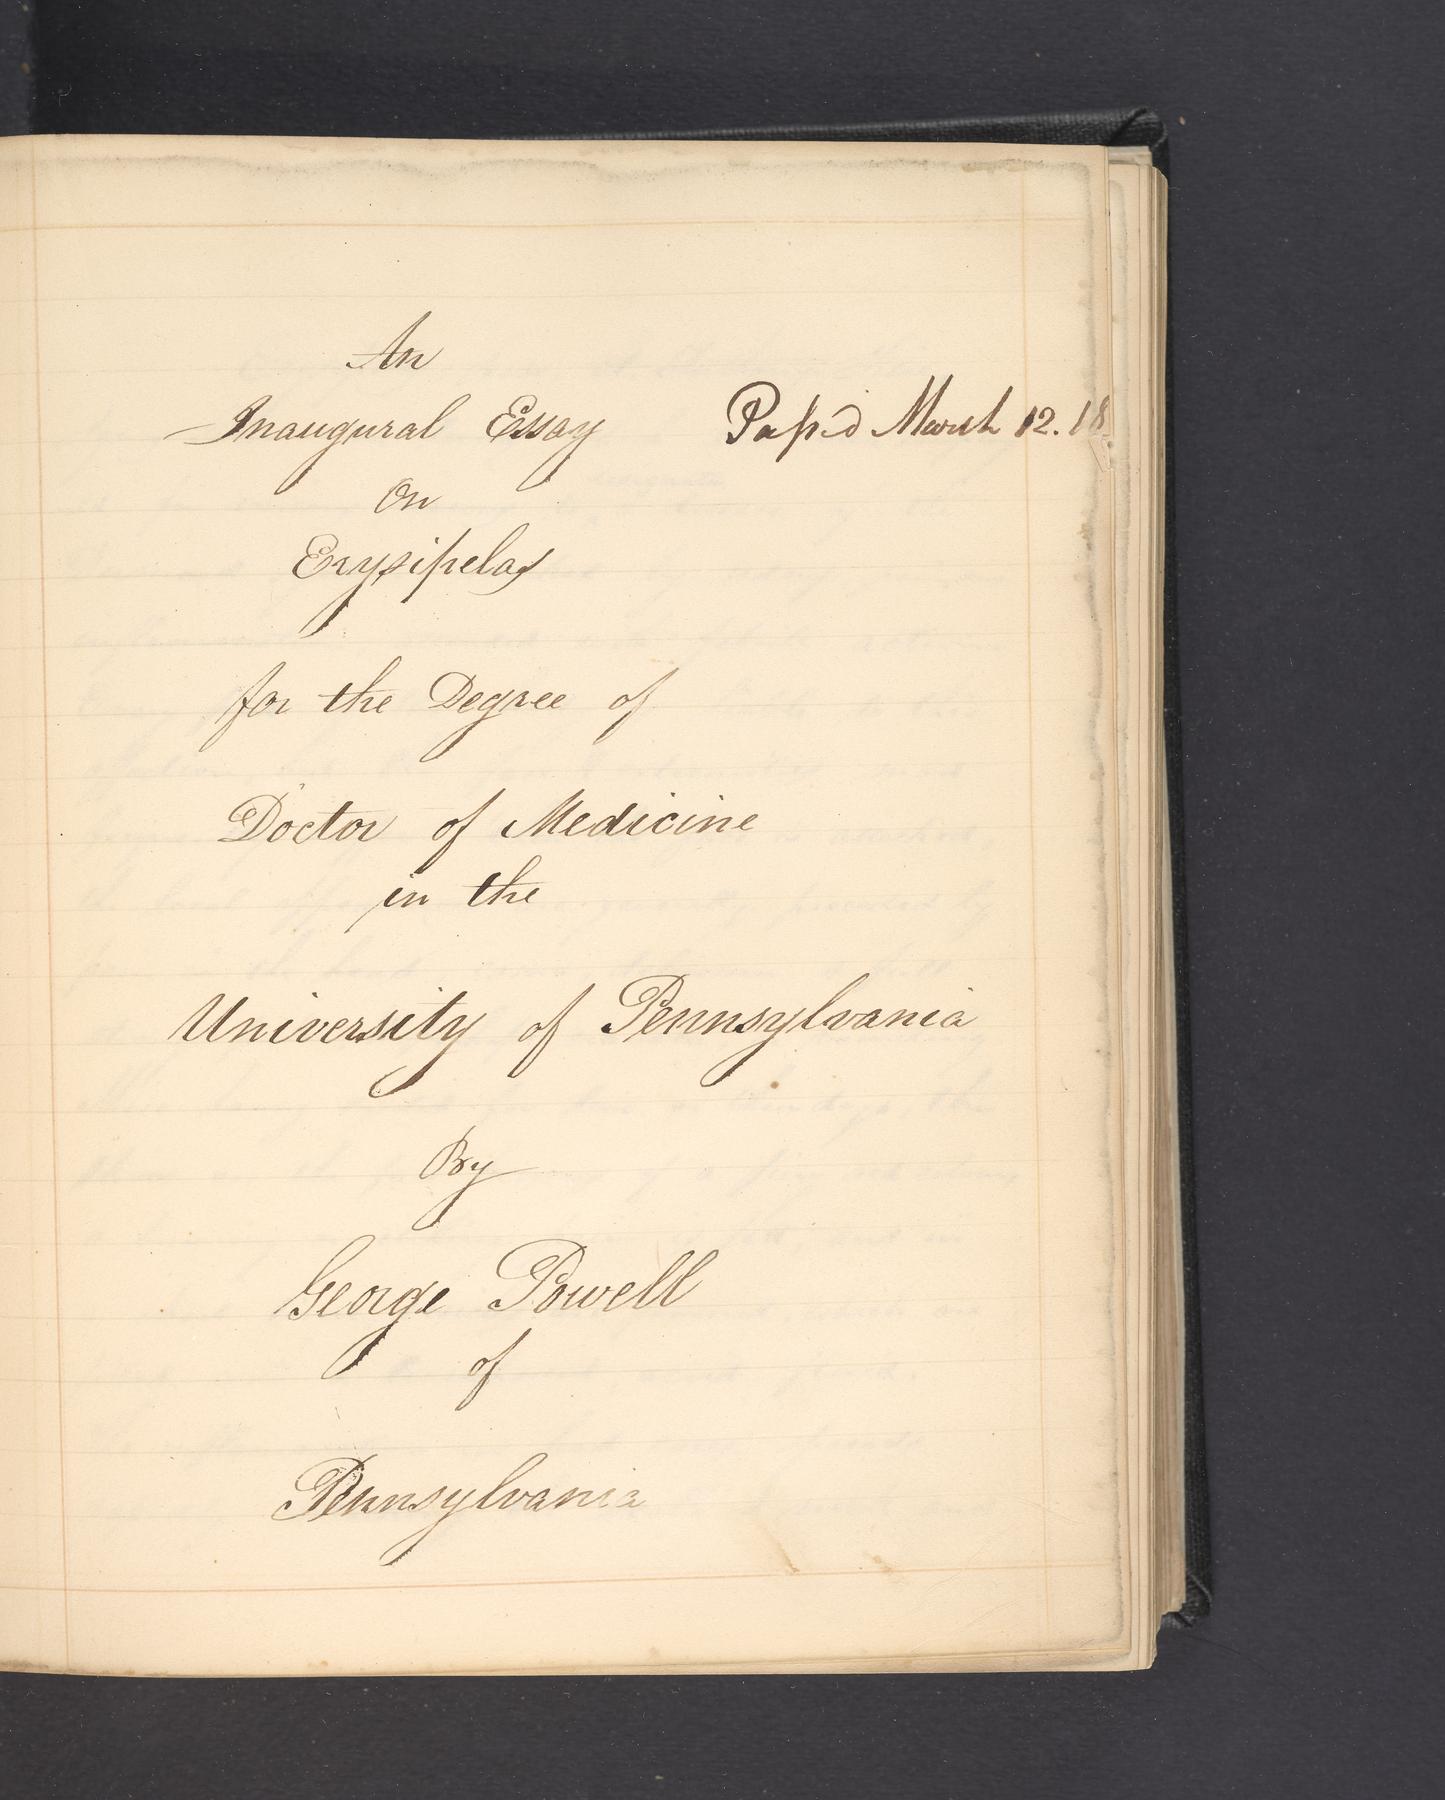 An
Inaugural Essay
Pass'd March 12. 18
On
Erysipelas
for the Degree of
Doctor of Medicine
in the
University of Pennsylvania
By
George Powell
of
Pennsylvania